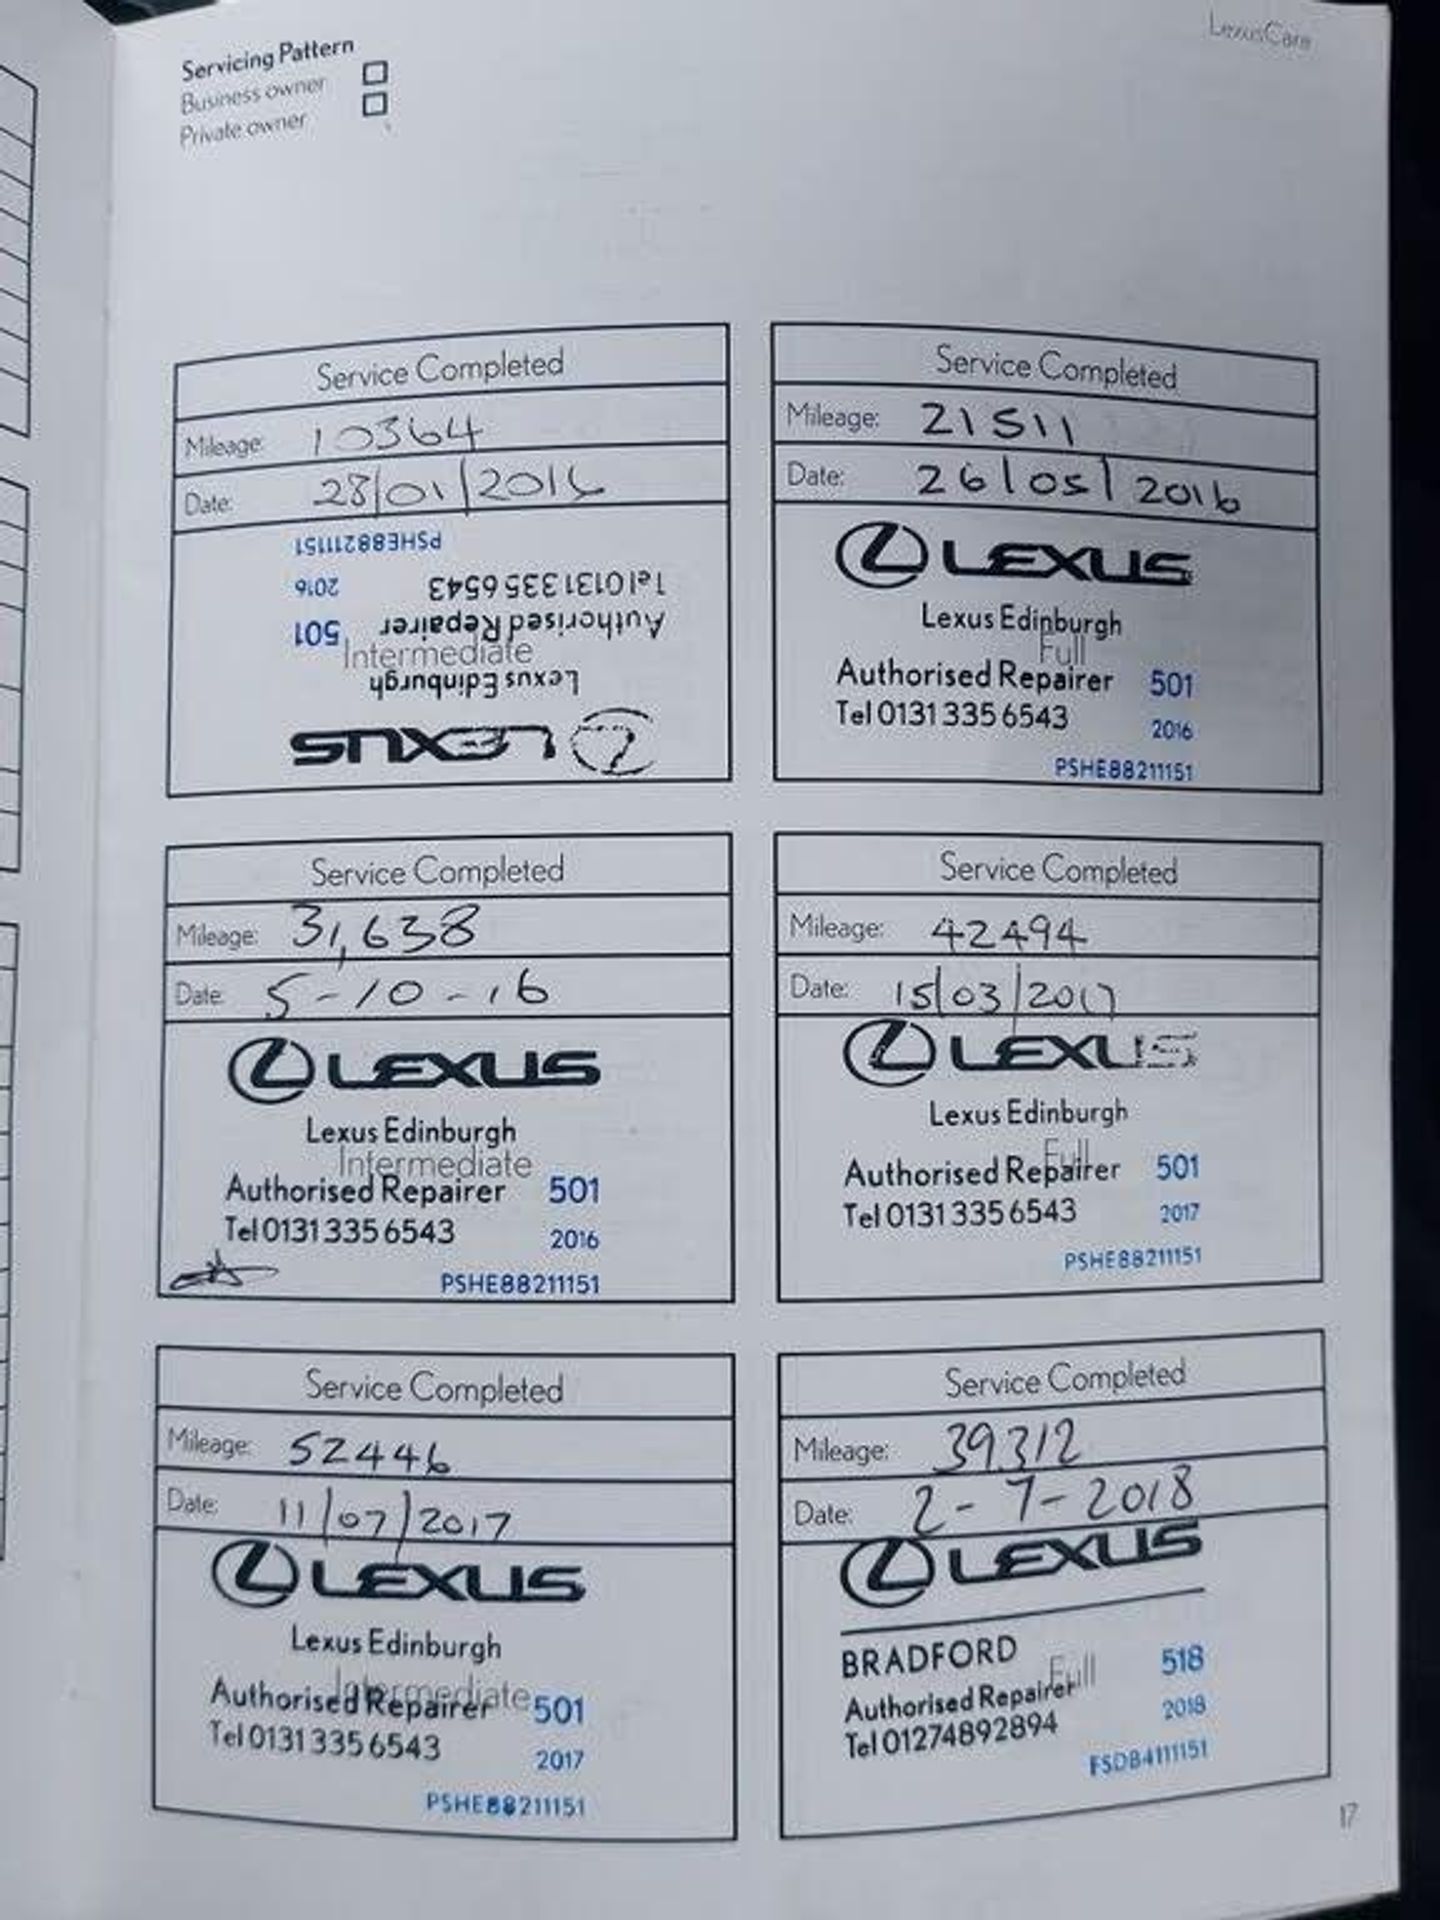 LexusCare
Servicing Pattern
Business owner
Private owner
Service Completed
Mileage: 10364
Date: 28/01/2016
PSHE88211151
2016
Tel 0131 335 6543
501
Authorised Repairer
Intermediate
Lexus Edinburgh
LEXUS
Service Completed
Mileage: 21511
Date: 26/05/2016
LEXUS
Lexus Edinburgh
Full
Authorised Repairer 501
Tel 0131 335 6543 2016
PSHE88211151
Service Completed
Mileage: 31,638
Date: 5-10-16
LEXUS
Lexus Edinburgh
Intermediate
Authorised Repairer 501
Tel 0131 335 6543 2016
PSHE88211151
Service Completed
Mileage: 42494
Date: 15/03/2017
LEXUS
Lexus Edinburgh
Full
Authorised Repairer 501
Tel 0131 335 6543 2017
PSHE88211151
Service Completed
Mileage: 52446
Date: 11/07/2017
LEXUS
Lexus Edinburgh
Intermediate
Authorised Repairer 501
Tel 0131 335 6543 2017
PSHE88211151
Service Completed
Mileage: 39312
Date: 2-7-2018
LEXUS
BRADFORD
Full 518
Authorised Repairer
2018
Tel 01274892894
FSDB4111151
17